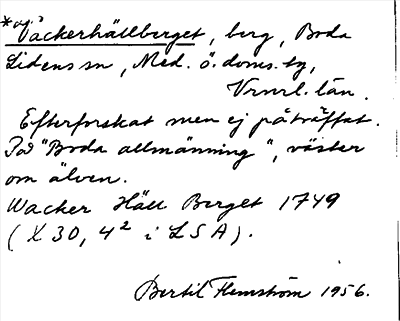 *Väckerhällberget, berg, Boda
Lidens sn, Med. ö. doms. tg,
Vrnrl. län.
Efterforskat men ej påträffat.
På "Boda allmänning", väster
om älven.
Wacker Häll Berget 1749
(X 30, 4² i LSA).
Bertil Flemström 1956.